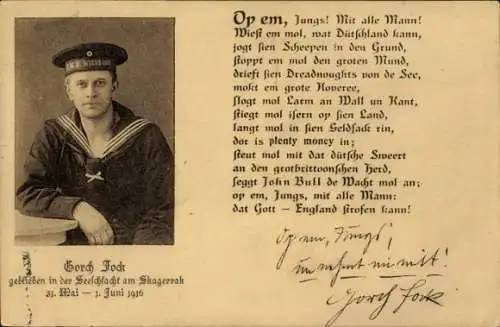 Op em, Jungs! Mit alle Mann!
Wiest em mol, wat Dütschland kann,
jogt sien Scheepen in den Grund,
stoppt em mol den groten Mund,
drieft sien Dreadnoughts von de See,
mokt em grote Hoveree,
slogt mol Larm an Wall un Kant,
stiegt mol isern op sien Land,
langt mol in sien Geldsack rin,
dor is plenty money in;
steut mol mit dat dütsche Sweert
an den grotbrittoonschen Herd,
seggt John Bull de Wacht mol an;
op em, Jungs, mit alle Mann:
dat Gott – England strofen kann!
Op em, Jungs!
un nehmt mi mit!
Gorch Fock
Gorch Fock
geblieben in der Seeschlacht am Skagerrak
31. Mai – 1. Juni 1916